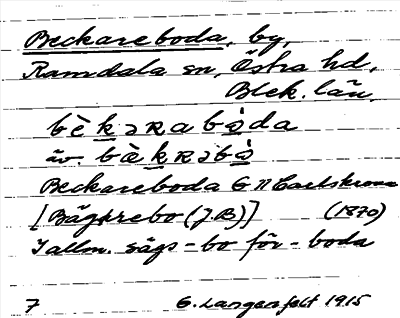 Beckareboda, by,
Ramdala sn, Östra hd,
Blek. län.
bèkəʀabòda
äv. bækʀəbò
Beckareboda G n Carlskrona
[Bägkrebo (J.B)] (1870)
I allm. sägs -bo för -boda
7 G. Langenfelt 1915